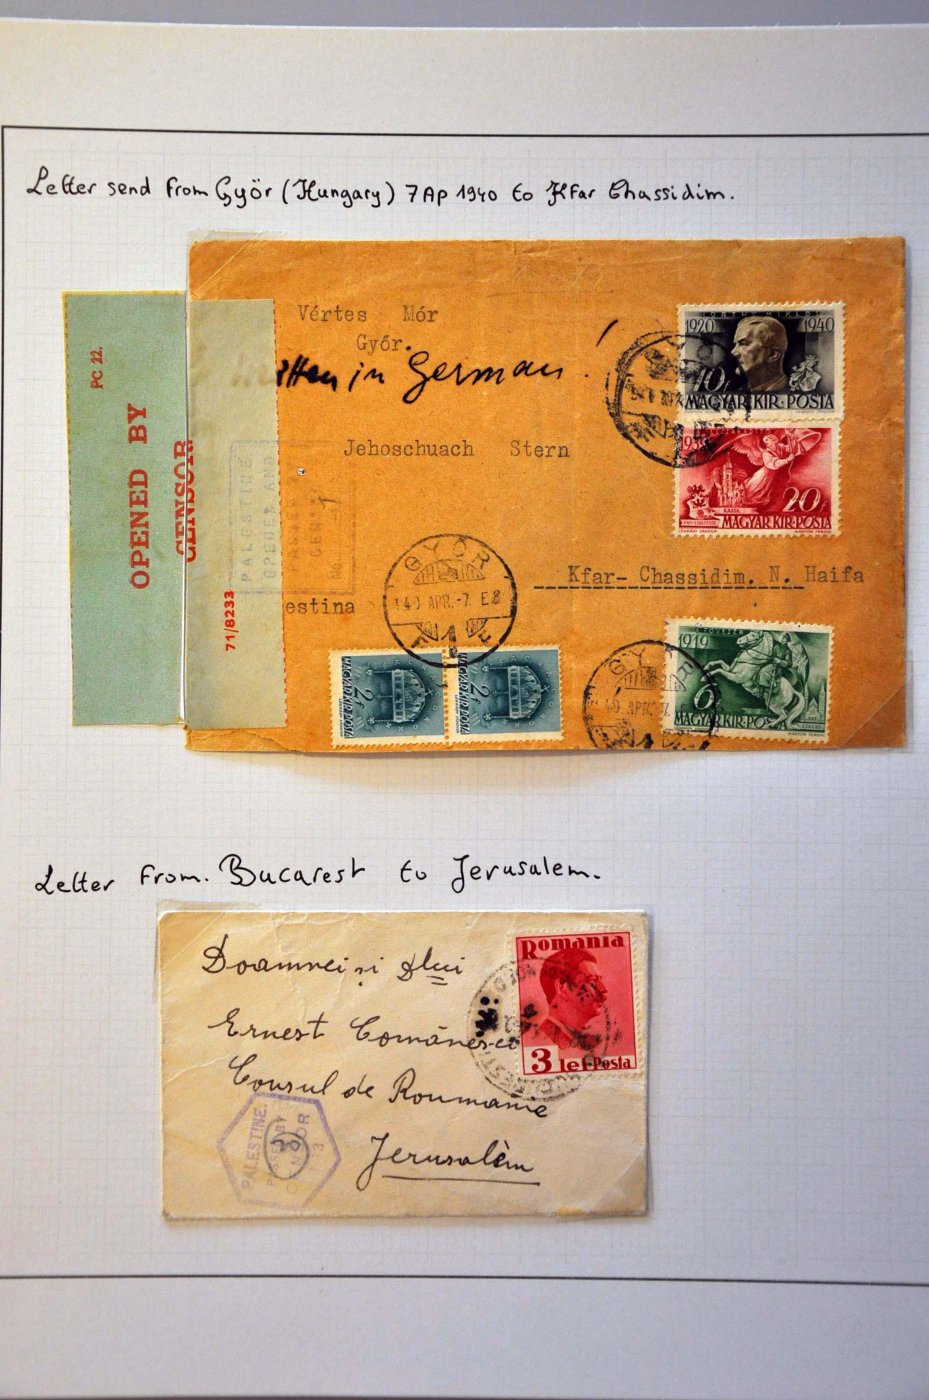 Letter send from Győr (Hungary) 7 Ap 1940 to Kfar Chassidim.
PC 22.
OPENED BY
CENSOR
71/8233
Vértes Mór
Győr.
in German!
Jehoschuach Stern
Kfar-Chassidim. N. Haifa
estina
PALESTINE
OPENED AND
GYŐR
940 APR.-7. E8
1920 1940
MAGYAR KIR. POSTA
20f
KASSA
MAGYAR KIR. POSTA
1919
6f
MAGYAR KIR. POSTA
GYŐR
2f
MAGYAR KIR. POSTA
2f
MAGYAR KIR. POSTA
Letter from. Bucarest to Jerusalem.
Doamnei și Dlui
Ernest Comănescu
Consul de Roumanie
Jerusalèm
Romania
3 lei Posta
PALESTINE.
CENSOR